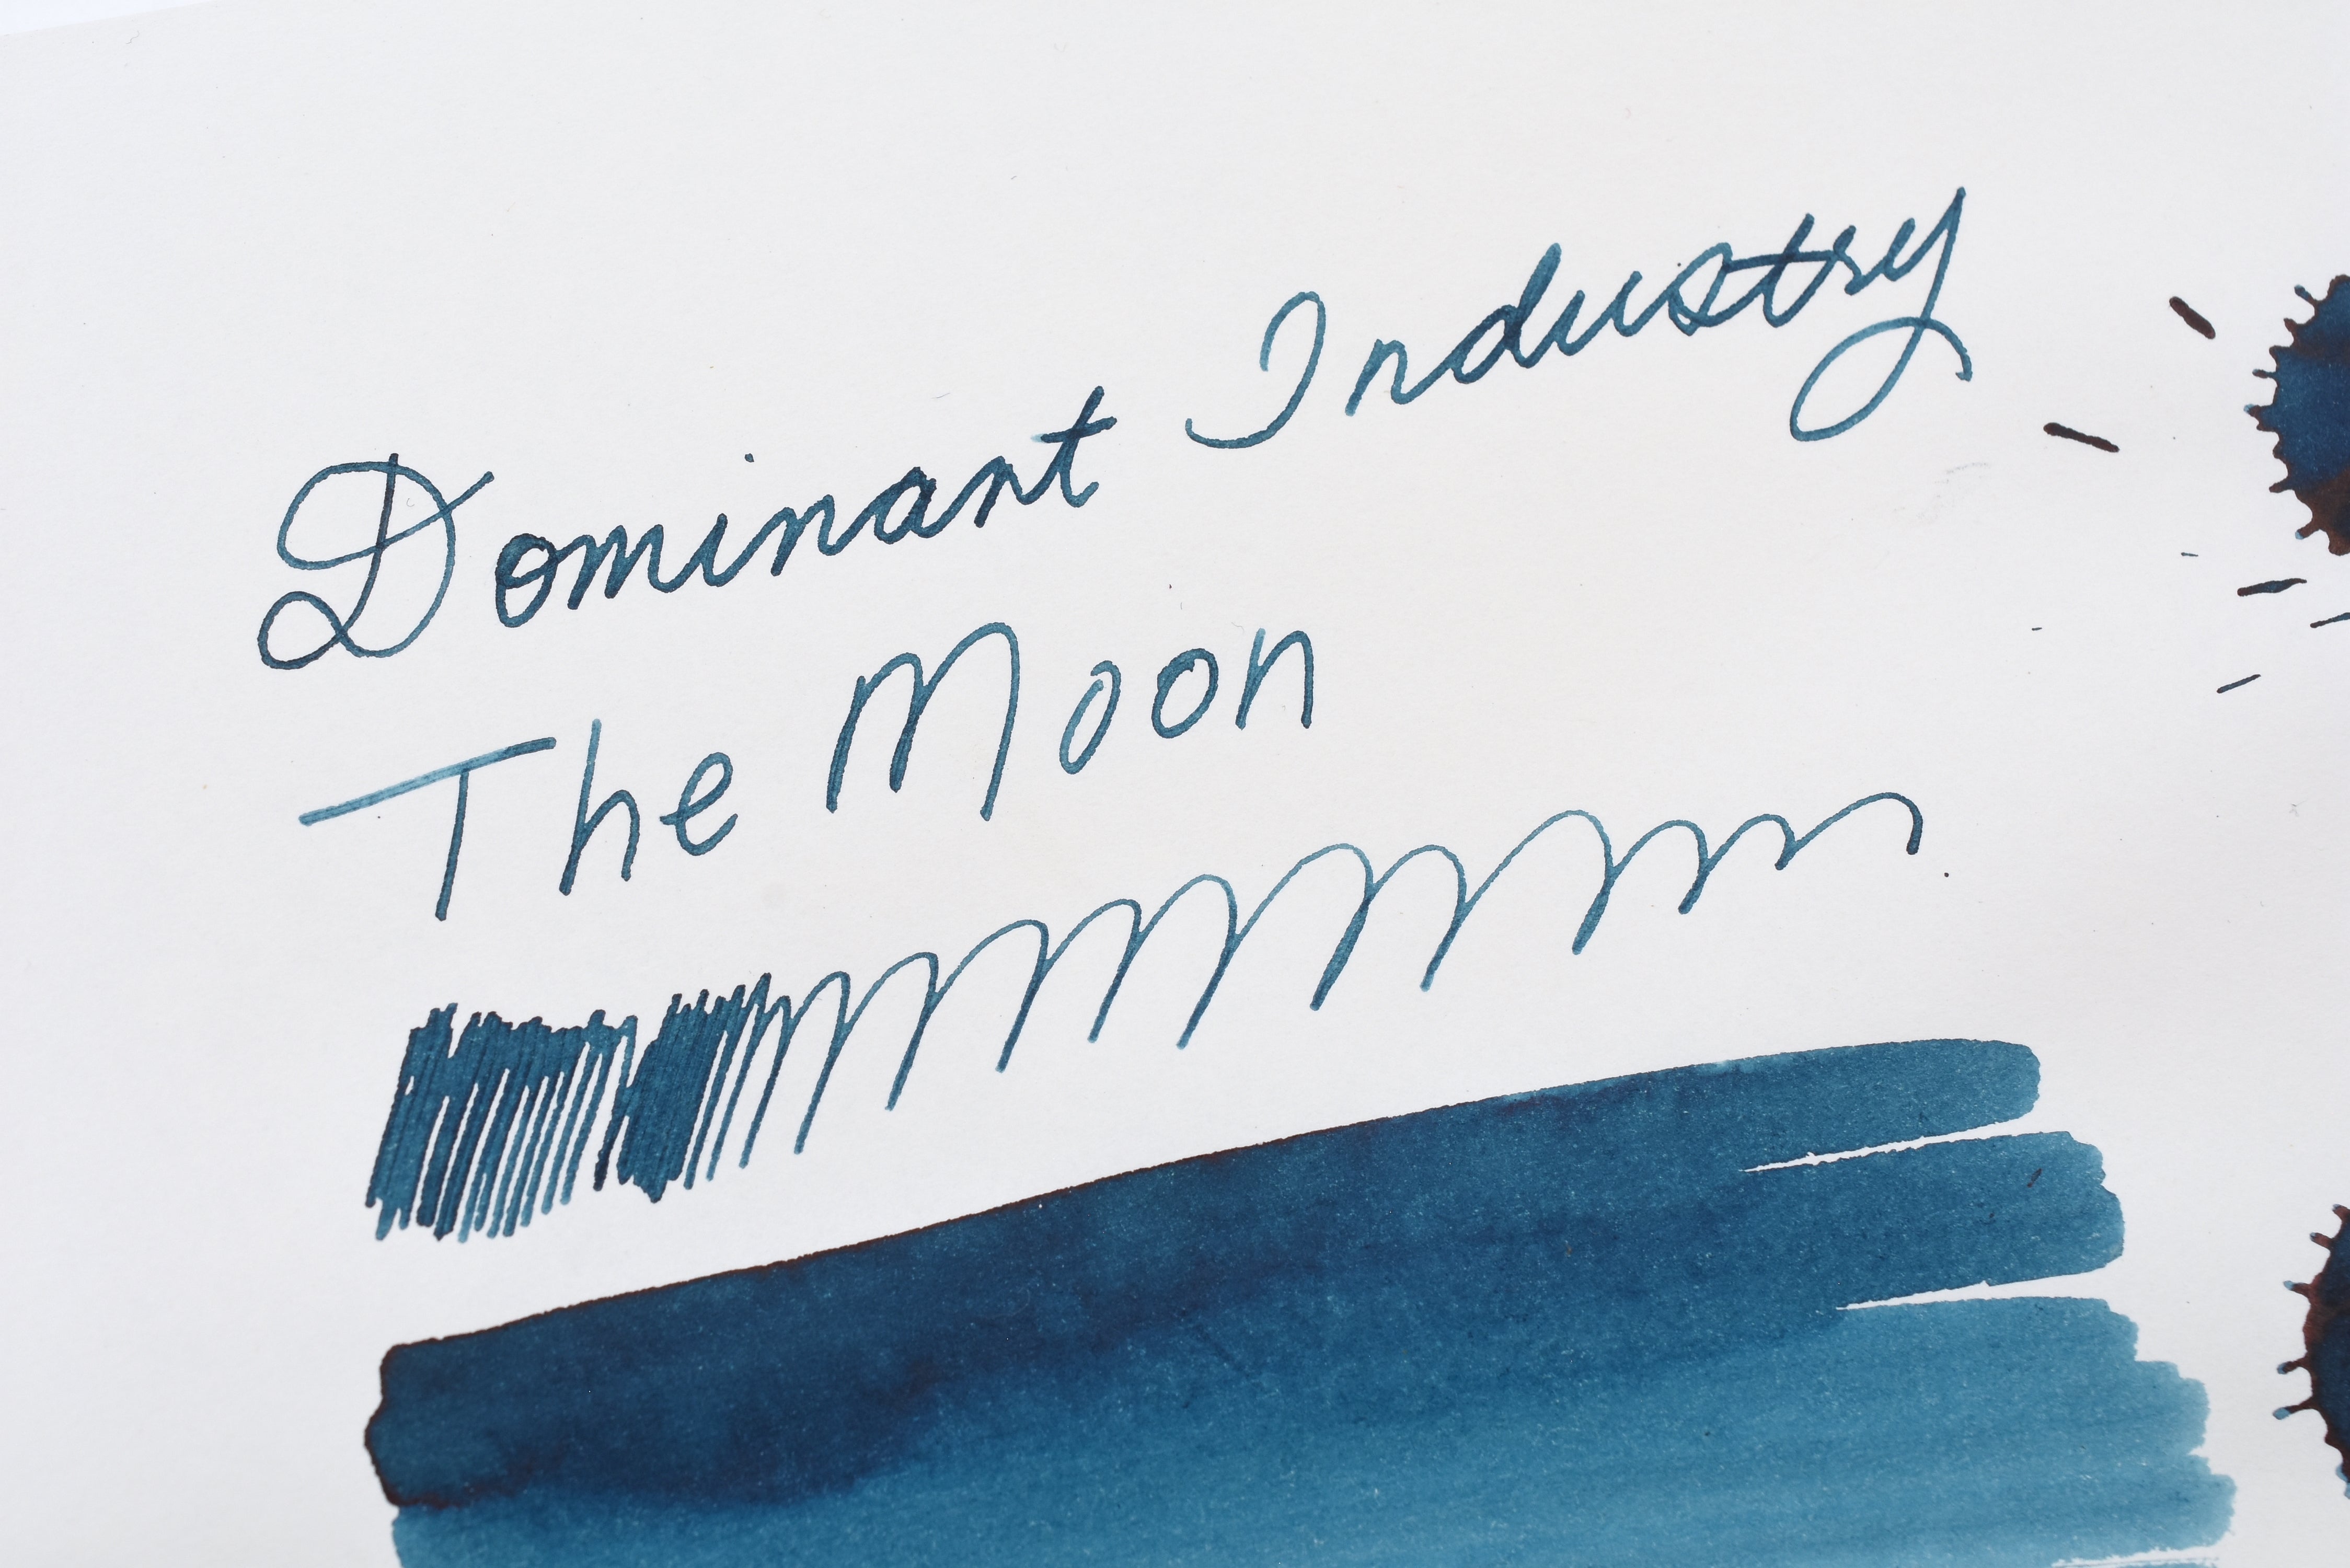 Dominant Industry
The Moon